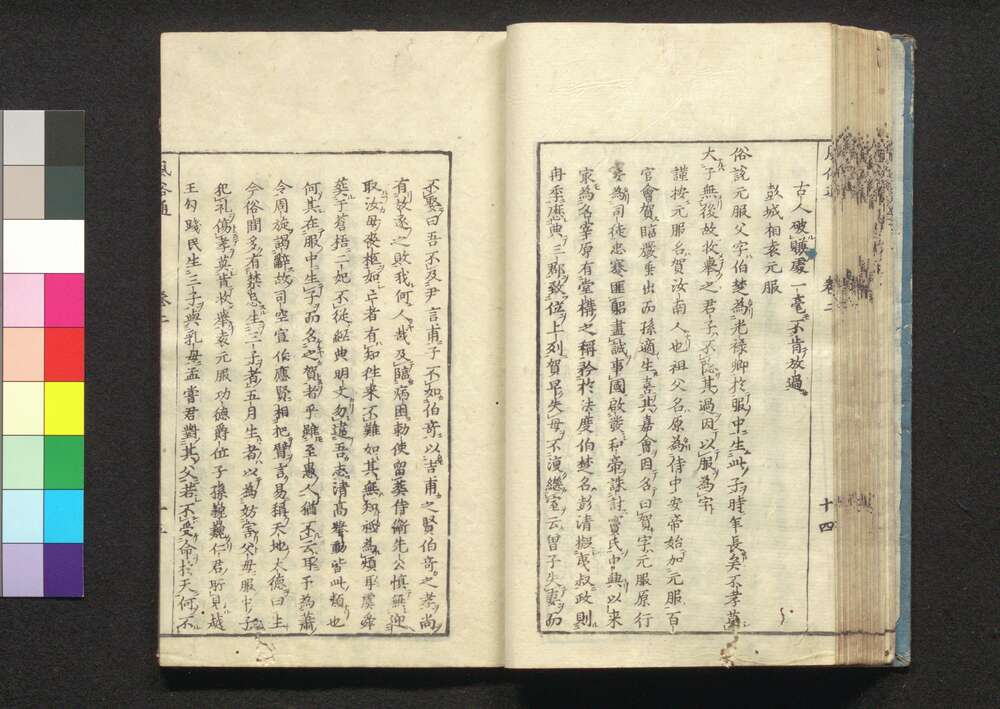 古人破賺處一毫不肯放過
彭城相袁元服
俗說元服父字伯楚為光祿卿於服中生此子時年長矣不孝莫
大于無後故收舉之君子不隱其過因以服為字
謹按元服名賀汝南人也祖父名原為侍中安帝始加元服百
官會賀臨嚴垂出而孫適生喜其嘉會因名曰賀字元服原行
妻為司徒忠蹇匪躬盡誠事國啟發和帝誅討竇氏中興以來
最為名宰原有堂構之稱矜於法度伯楚名彭清擬夷叔政則
冉季歷典三郡致位上列賀早失母不復繼室云曾子失妻而
風俗通 卷二 十四
不娶曰吾不及尹吉甫子不如伯奇以吉甫之賢伯奇之孝尚
有放逐之敗我何人哉及臨病困勅使留葬侍衛先公慎無迎
取汝母喪柩如亡者有知往來不難如其無知祗為煩耳虞舜
葬于蒼梧二妃不從經典明文勿違吾志清高舉動皆此類也
何其在服中生子而名之賀者乎雖至愚人猶不云耳予為蕭
令周旋謁辭故司空宣伯應賢相把臂言易稱天地大德曰生
今俗間多有禁忌生三子者五月生者以為妨害父母服中子
犯禮傷孝莫肯收舉袁元服功德爵位子孫巍巍仁君所見越
王勾踐民生三子與乳母孟嘗君對其父若不受命於天何不
風俗通